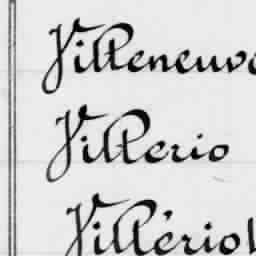 Villeneuve
Villerio
Villériot